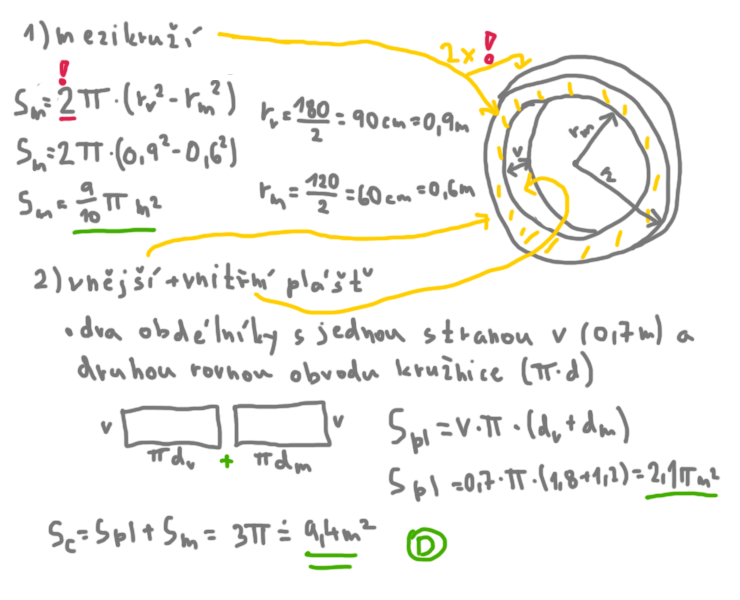 1) mezikruží
2x !
!
Sₘ = 2π · (rᵥ² - rₘ²)
rᵥ = 180/2 = 90cm = 0,9m
Sₘ = 2π · (0,9² - 0,6²)
rₘ = 120/2 = 60cm = 0,6m
Sₘ = 9/10 π m²
rₘ
v
2) vnější + vnitřní plášť
• dva obdélníky s jednou stranou v (0,7m) a
druhou rovnou obvodu kružnice (π·d)
v v
πdᵥ + πdₘ
Sₚₗ = v·π·(dᵥ + dₘ)
Sₚₗ = 0,7·π·(1,8+1,2) = 2,1π m²
S꜀ = Sₚₗ + Sₘ = 3π ≐ 9,4m² D